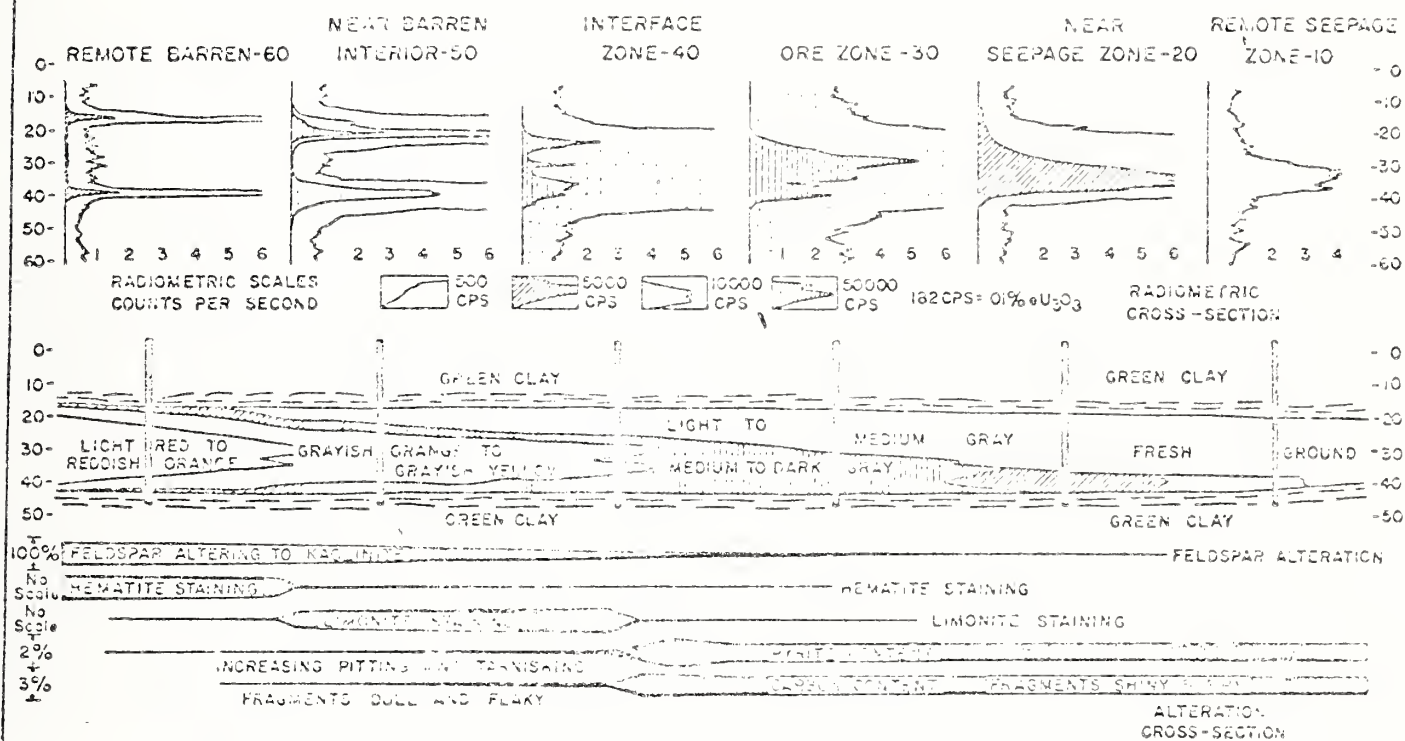 REMOTE BARREN-60
NEAR BARREN
INTERIOR-50
INTERFACE
ZONE-40
ORE ZONE-30
NEAR
SEEPAGE ZONE-20
REMOTE SEEPAGE
ZONE-10
0-
10-
20-
30-
40-
50-
60-
-0
-10
-20
-30
-40
-50
-60
1 2 3 4 5 6
1 2 3 4 5 6
1 2 3 4 5 6
1 2 3 4 5 6
2 3 4 5 6
2 3 4
RADIOMETRIC SCALES
COUNTS PER SECOND
500
CPS
5000
CPS
10000
CPS
50000
CPS
RADIOMETRIC
CROSS-SECTION
0-
10-
20-
30-
40-
50-
-0
-10
-20
-30
-40
-50
GREEN CLAY
GREEN CLAY
LIGHT RED TO
REDDISH ORANGE
GRAYISH ORANGE TO
GRAYISH YELLOW
LIGHT TO MEDIUM GRAY
MEDIUM TO DARK GRAY
FRESH GROUND
GREEN CLAY
GREEN CLAY
100%
FELDSPAR ALTERING TO KAOLINITE
FELDSPAR ALTERATION
No
Scale
HEMATITE STAINING
HEMATITE STAINING
No
Scale
LIMONITE STAINING
LIMONITE STAINING
2%
INCREASING PITTING AND TARNISHING
3%
FRAGMENTS DULL AND FLAKY
CARBON CONTENT
FRAGMENTS SHINY
ALTERATION
CROSS-SECTION